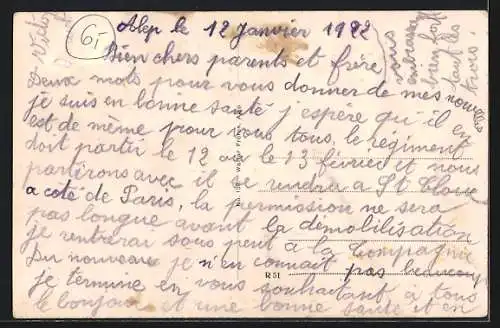 61
Alep le 12 Janvier 1922
Bien chers parents et frère
Deux mots pour vous donner de mes nouvelles
je suis en bonne santé j'espère qu'il en
est de même pour vous tous, le régiment
doit partir le 12 ou le 13 février et nous
partirons avec il se rendra a St Cloue
a coté de Paris, la permission ne sera
pas longue avant la démobilisation
je rentrerai sous peut a la Compagnie
Du nouveau je n'en connait pas beaucoup
je termine en vous souhaitant à tous
le bonjour et une bonne santé et en
R 51
vous
embrassant
bien fort
tous les
trois.
Victor